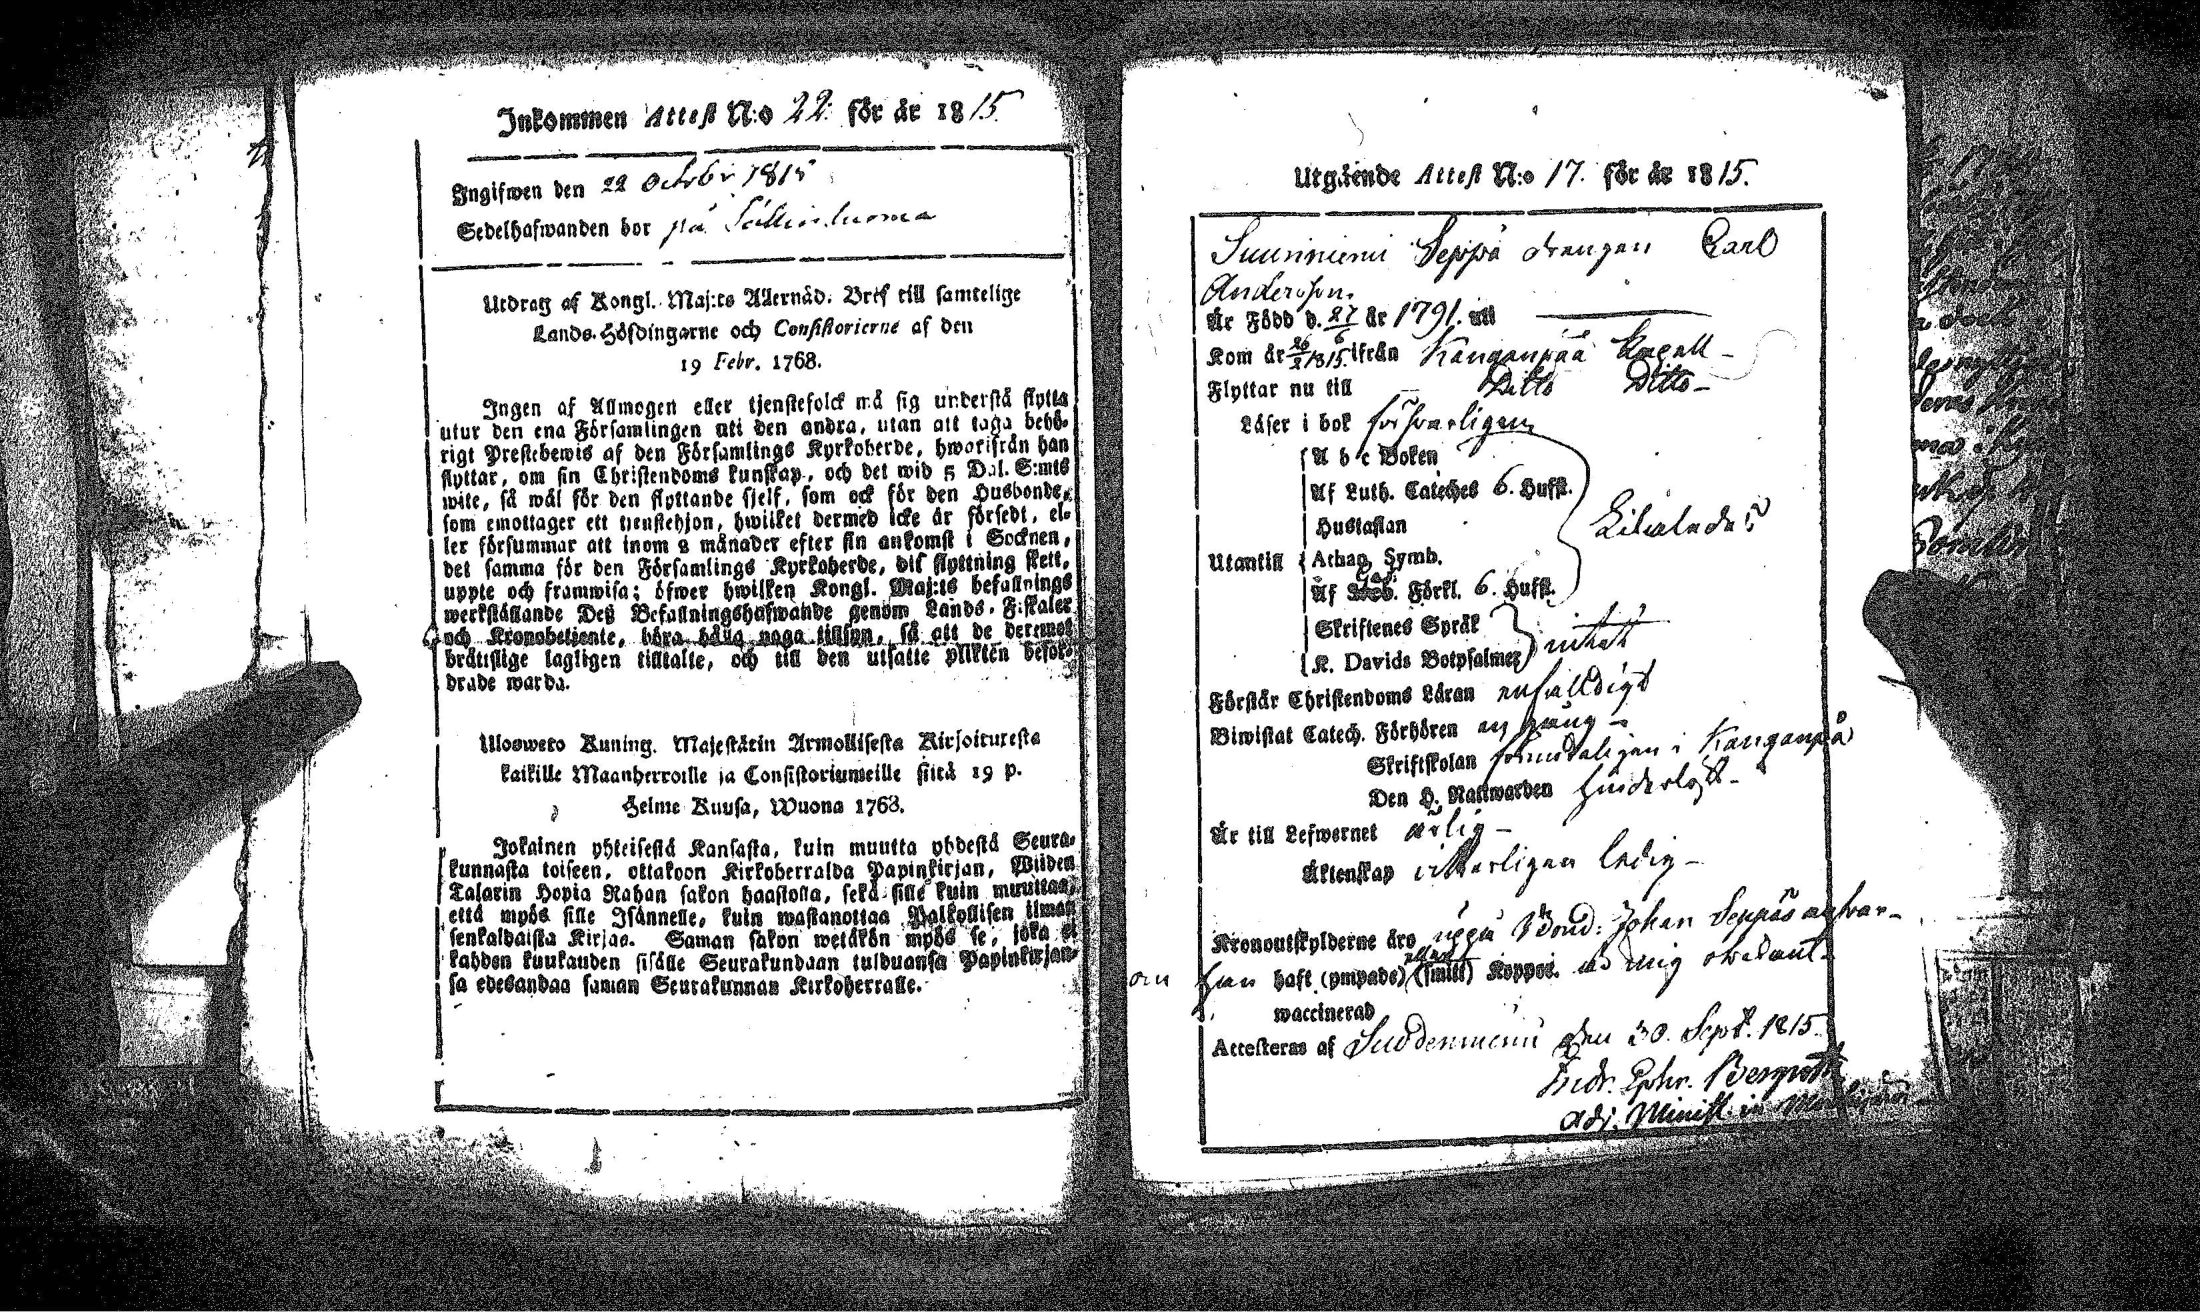 Inkommen Attest N:o 22. för år 1815
Ingifwen den 22 Octobr 1815
Sedelhafwanden bor på
Utdrag af Kongl. Maj:ts Allernåd. Bref till samtelige
Lands-Höfdingarne och Consistorierne af den
19 Febr. 1768.
Ingen af Allmogen eller tjenstefolck må sig understå flytta
utur den ena Församlingen uti den andra, utan att taga behö-
rigt Prestebewis af den Församlings Kyrkoherde, hworifrån han
flyttar, om sin Christendoms kunskap, och det wid 5 Dal. S:mts
wite, så wäl för den flyttande sjelf, som ock för den Husbonde,
som emottager ett tienstehjon, hwilket dermed icke är försedt, el-
ler försummar att inom 2 månader efter sin ankomst i Socknen,
det samma för den Församlings Kyrkoherde, dit flyttning skett,
uppte och framwisa; öfwer hwilken Kongl. Maj:ts befallnings
werkställande Deß Befallningshafwande genom Lands-Fiskaler
och Kronobetiente, böra hålla noga tillsyn, så att de deremot
bråtislige lagligen tilltalte, och till den utsatte plikten befor-
drade warda.
Ulosweto Kuning. Majestätin Armollisesta Kirjoituxesta
kaikille Maanherroille ja Consistoriumeille siitä 19 p.
Helme Kuusa, Wuona 1768.
Jokainen yhteisestä Kansasta, kuin muutta yhdestä Seura-
kunnasta toiseen, ottakoon Kirkoherralda Papinkirjan, Wiiden
Talarin Hopia Rahan sakon haastolla, sekä sille kuin muuttaa,
että myös sille Isännelle, kuin wastanottaa Palkollisen ilman
senkaldaista Kirjaa. Saman sakon wetäkön myös se, joka ei
kahden kuukauden sisälle Seurakundaan tulduansa Papinkirjan-
sa edesandaa saman Seurakunnan Kirkoherralle.
Utgående Attest N:o 17. för år 1815.
Suurniemi Seppä drängen Carl
Andersson.
Är Född d. 27/6 år 1791. uti
Kom år 26/2 1815. ifrån Kanganpää Kapell
Flyttar nu till Ditto Ditto
Läser i bok försvarligen
A b c Boken
Af Luth. Cateches 6. Hufst.
Hustaflan
Utantill Athan. Symb.
Af Förkl. 6. Hufst.
Skriftenes Språk
K. Davids Botpsalmer intet
Förstår Christendoms Läran enfalldigt
Biwistat Catech. Förhören en gång
Skriftskolan i Kanganpää
Den H. Nattwarden
Är till Lefwernet ärlig
Äktenskap ledig
Kronoutskylderne äro uppå Bond: Johan Seppäs answar
om han haft (ympade) (smitt) Koppor. är mig obekant.
waccinerad
Attesteras af Suodenniemi den 30. Sept. 1815.
Andr. Ephr. Bergroth
Adj. Minist. in